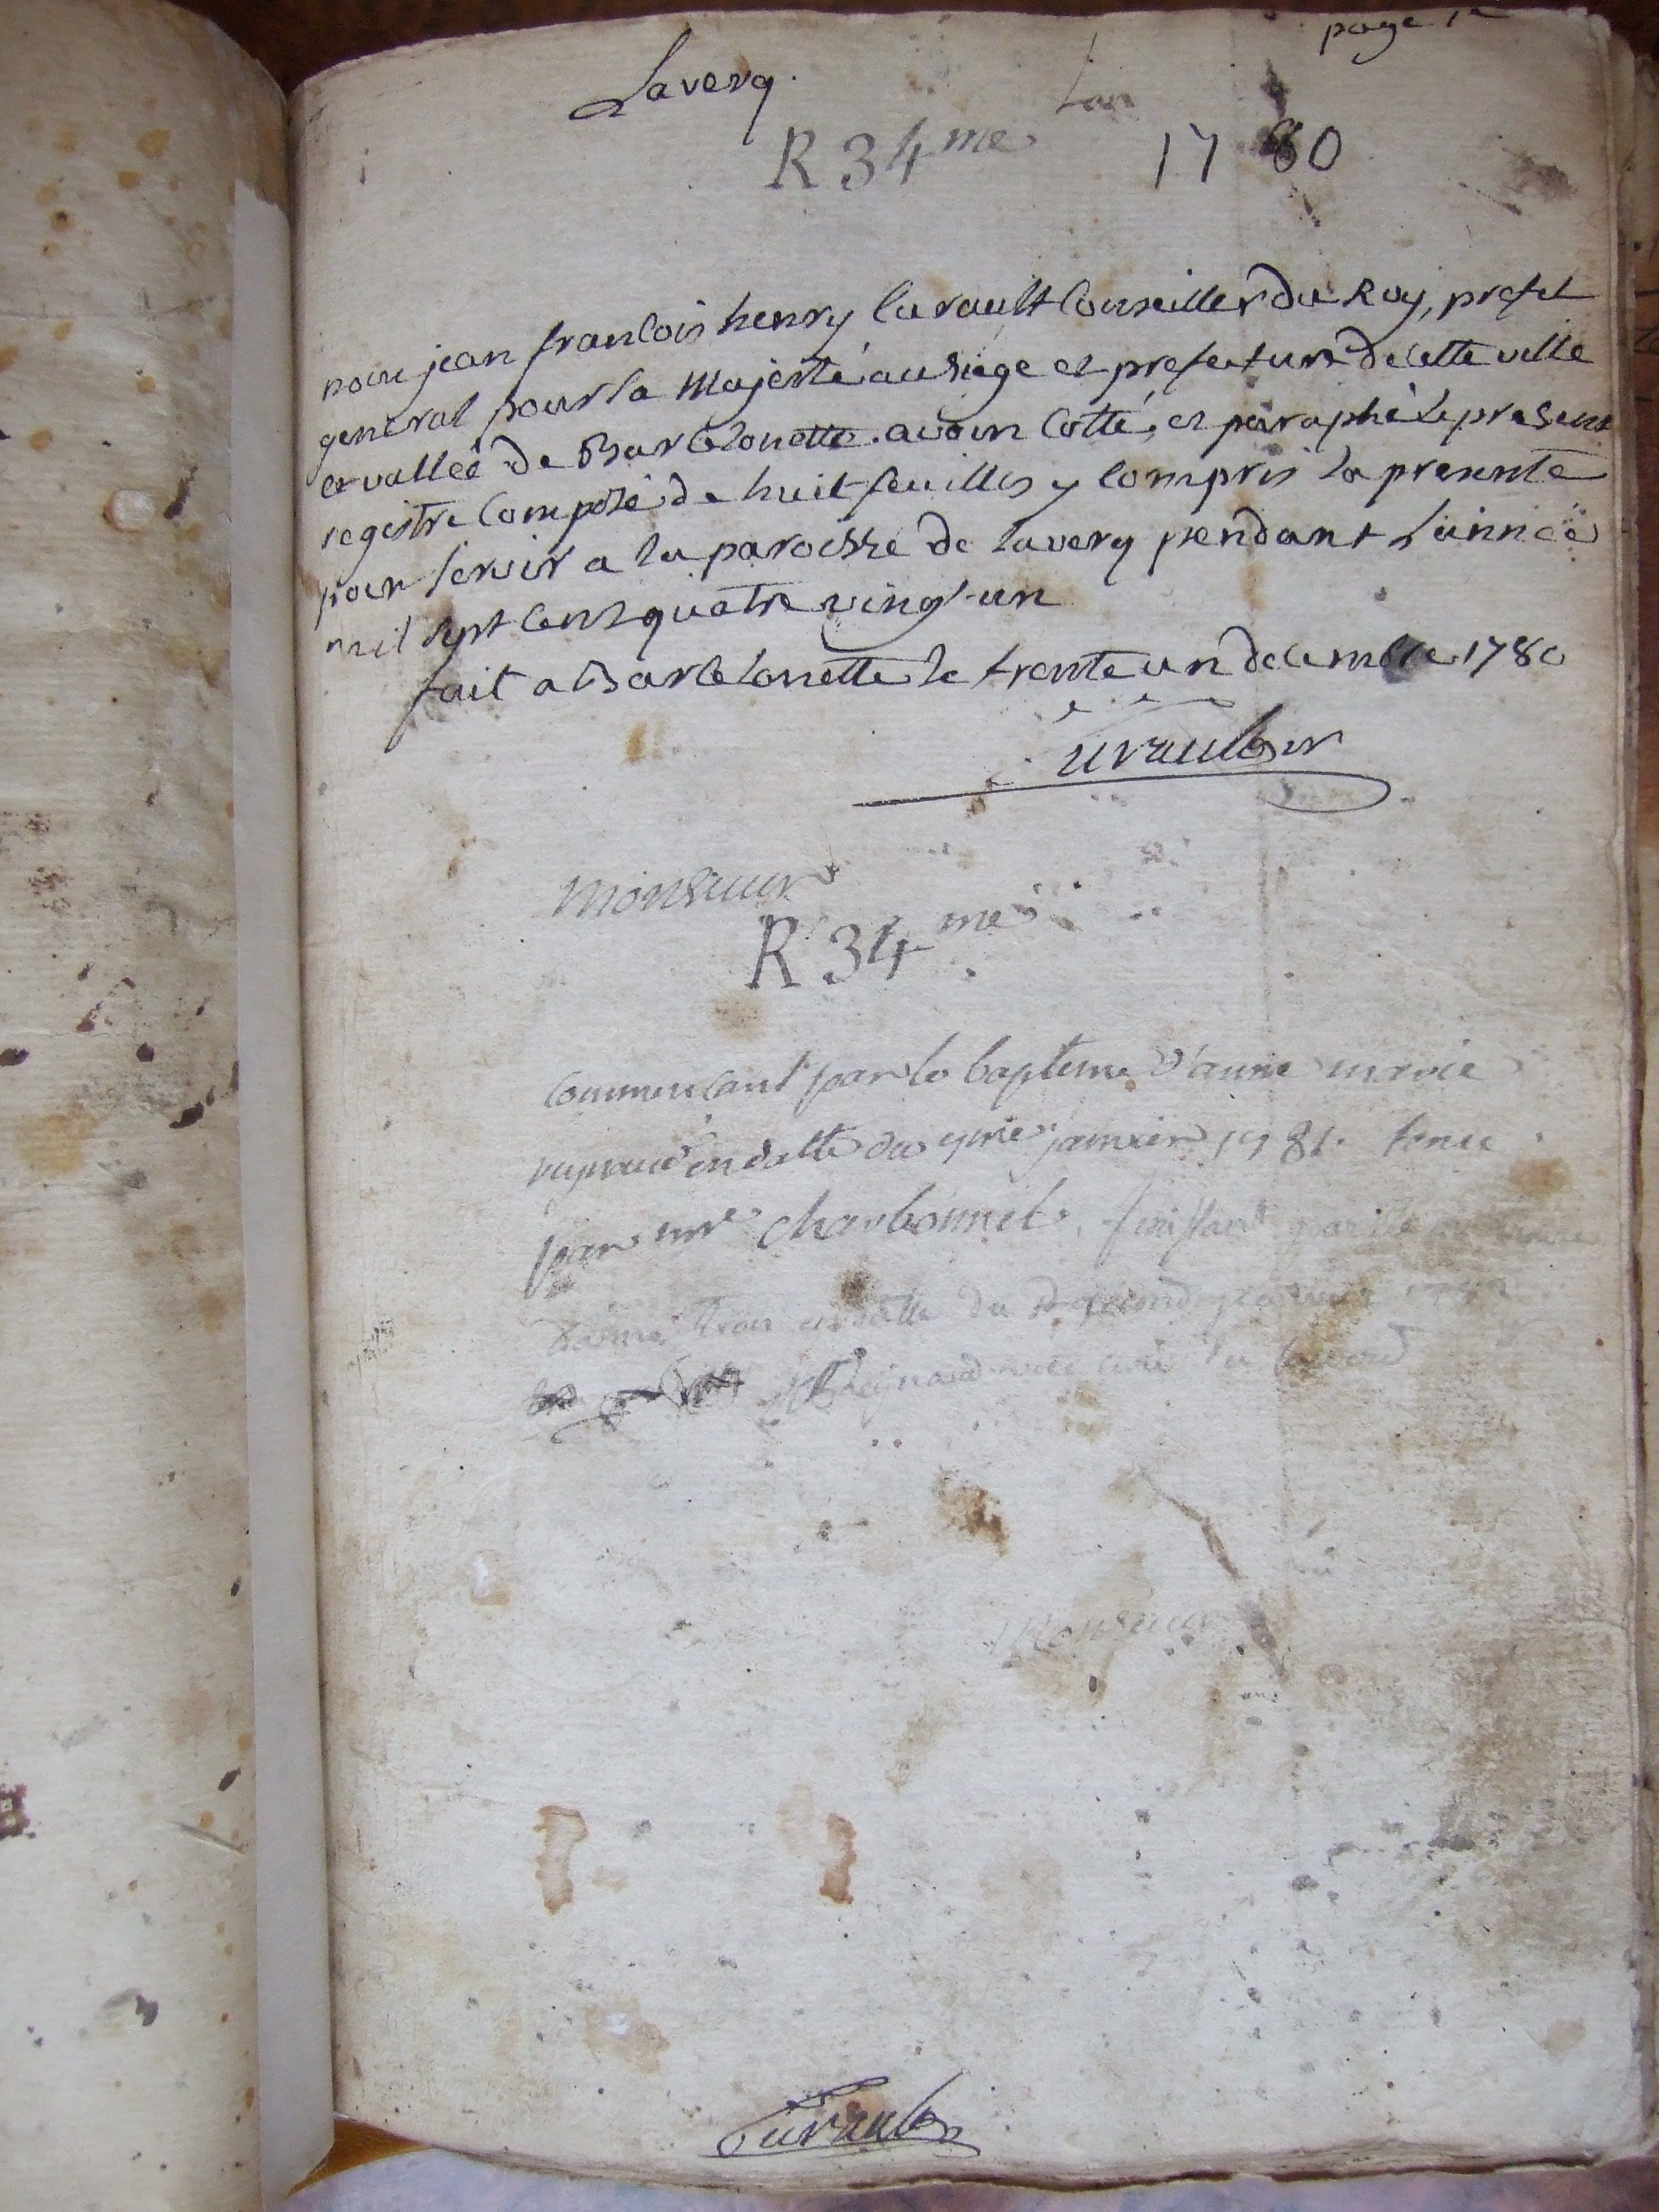 page 1e
Laverq.
L'an
R 34me 1780
nous jean francois henry Curault Conseiller du Roy, prefet
general pour sa Majesté au siege et prefecture de cette ville
et vallée de Barcelonette. avons Cotté, et paraphé le present
registre Composé de huit feuilles y compris la presente
pour servir a la paroisse de laverq pendant l'année
mil sept cent quatre vingt-un
fait a Barcelonette le trente un decembre 1780
Curault
Monsieur
R 34me
Commencant par le bapteme d'anne marie
en datte du janvier 1781. tenu
par mre charbonnel. finissant par
en datte du second 
Reynaud curé du laverq
Monsieur
Curault